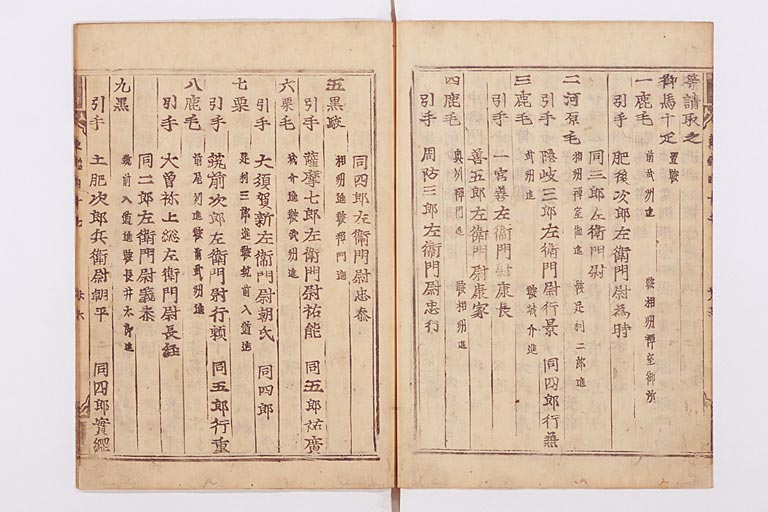 奉請取之
御馬十疋 置鞍
一鹿毛 前武州進 鞍相州禅室御沙
引手 肥後次郎左衛門尉為時
同三郎左衛門尉
二河原毛 相州禅室御進 鞍足利二郎進
引手 隠岐三郎左衛門尉行景 同四郎行兼
三鹿毛 武州進 鞍城介進
引手 一宮善左衛門尉康長
善五郎左衛門尉康家
四鹿毛 奥州禅門進 鞍相州進
引手 周防三郎左衛門尉忠行
同四郎左衛門尉忠泰
五黒駮 相州進鞍禅門進
引手 薩摩七郎左衛門尉祐能 同五郎祐廣
六栗毛 城介進鞍武州進
引手 大須賀新左衛門尉朝氏 同四郎
七栗 足利三郎進鞍筑前入道進
引手 筑前次郎左衛門尉行頼 同五郎行重
八鹿毛 前尾州進鞍前武州進
引手 大曾祢上総左衛門尉長経
同二郎左衛門尉義泰
九黒 筑前入道進鞍長井太郎進
引手 土肥次郎兵衛尉朝平 同四郎實綱